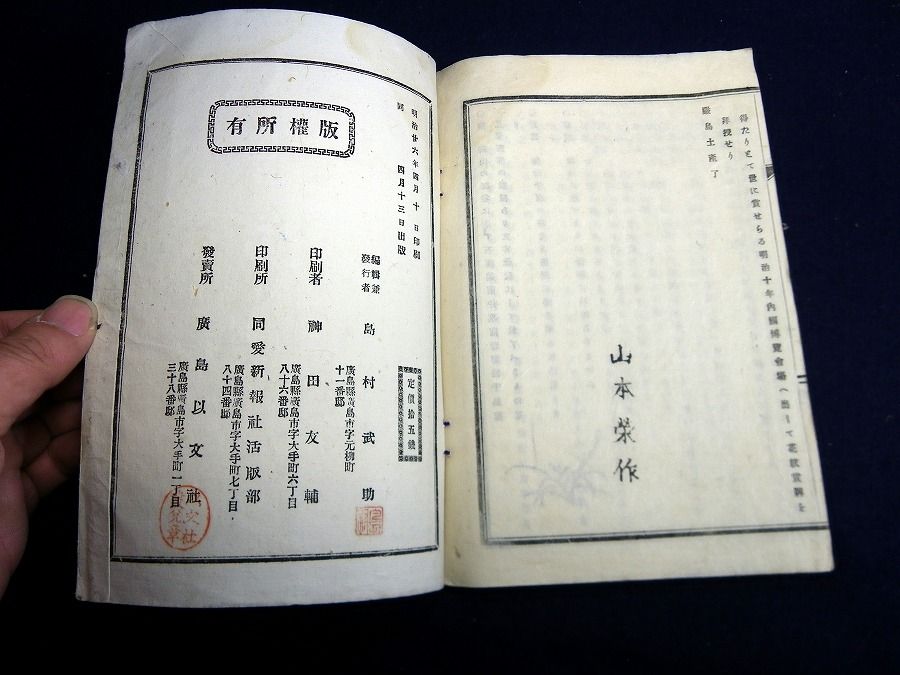 得たりとて世に賞せらる明治十年內國博覽會場へ出して花紋賞牌を
拜授せり
嚴島土產了
山本榮作
明治廿六年四月十日印刷
同 四月十三日出版
版權所有
定價拾五錢
編輯兼
發行者 島村武助
廣島縣廣島市字元柳町
十一番邸
印刷者 神田友輔
廣島縣廣島市字大手町六丁目
八十六番邸
印刷所 同愛新報社活版部
廣島縣廣島市字大手町七丁目
八十四番邸
發賣所 廣島以文社
廣島縣廣島市字大手町一丁目
三十八番邸